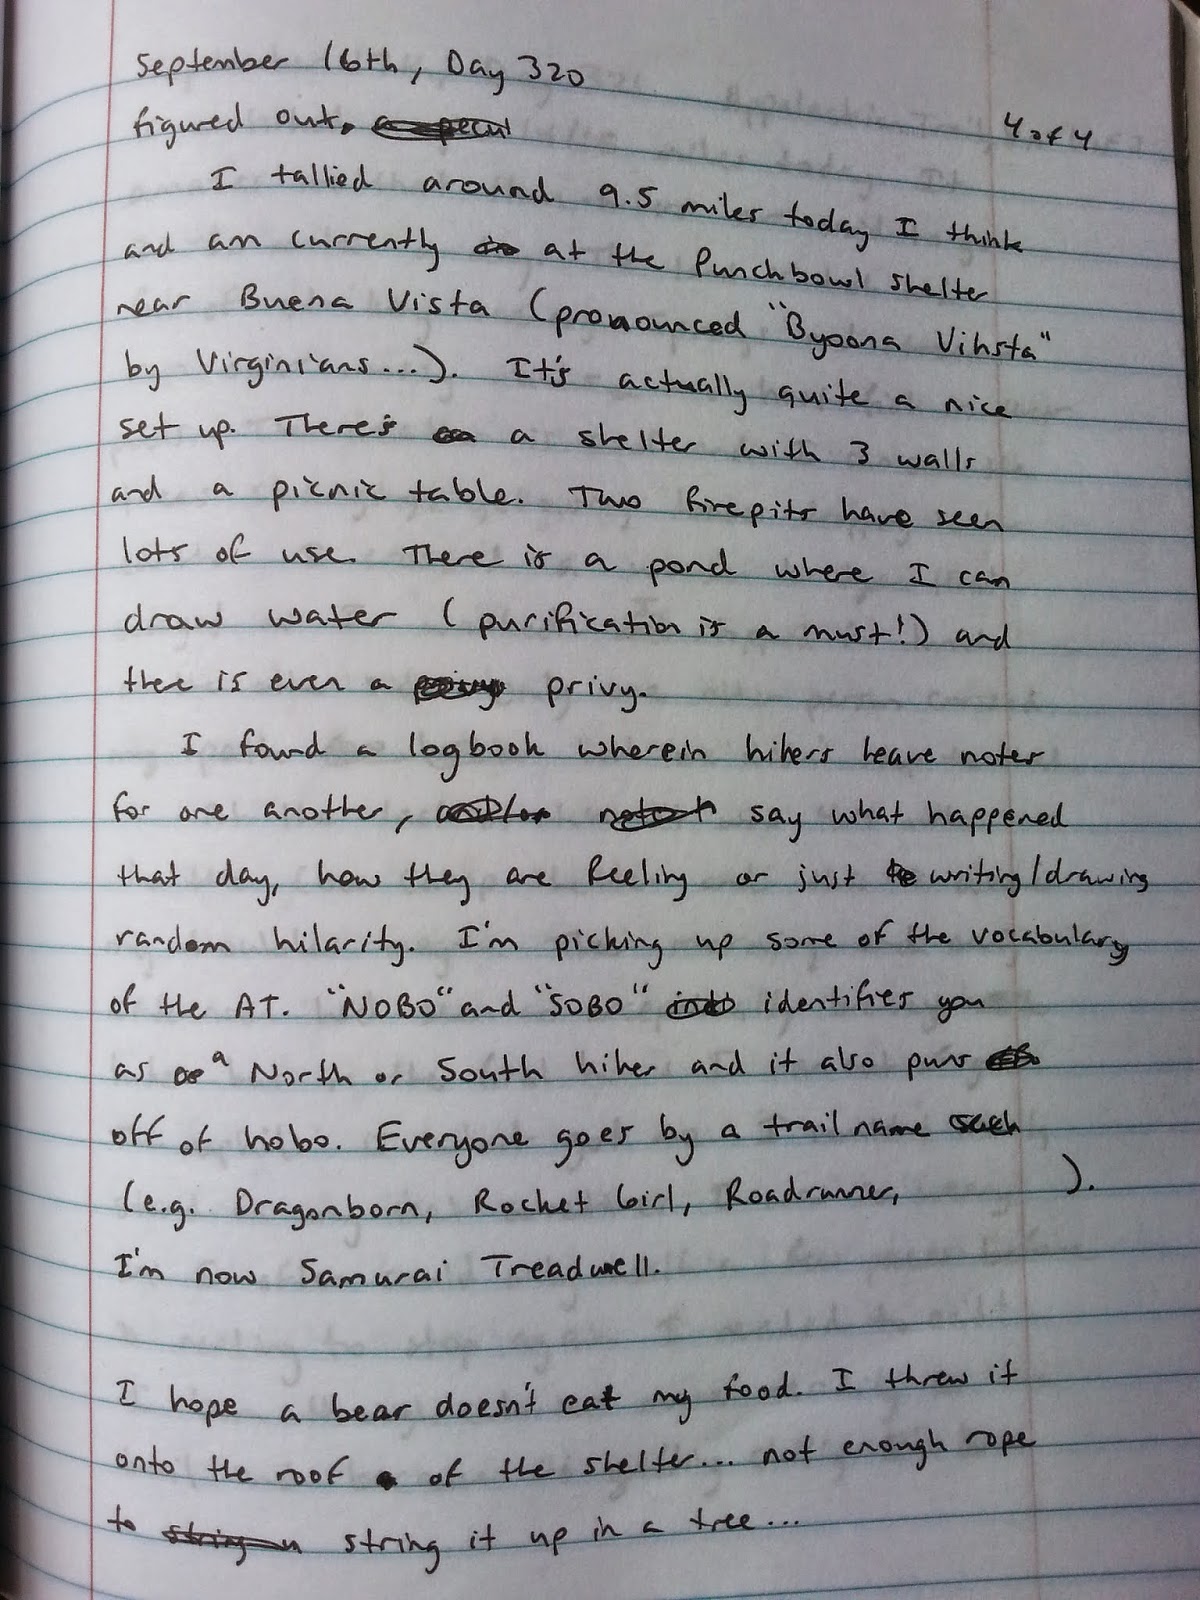 September 16th, Day 320
figured out.
4 of 4
I tallied around 9.5 miles today I think
and am currently at the Punchbowl shelter
near Buena Vista (pronounced "Byoona Vihsta"
by Virginians...). It's actually quite a nice
set up. There's a shelter with 3 walls
and a picnic table. Two firepits have seen
lots of use. There is a pond where I can
draw water (purification is a must!) and
there is even a privy.
I found a logbook wherein hikers leave notes
for one another, say what happened
that day, how they are feeling or just writing/drawing
random hilarity. I'm picking up some of the vocabulary
of the AT. "NOBO" and "SOBO" identifies you
as a North or South hiker and it also puns
off of hobo. Everyone goes by a trail name
(e.g. Dragonborn, Rocket Girl, Roadrunner, ).
I'm now Samurai Treadwell.
I hope a bear doesn't eat my food. I threw it
onto the roof of the shelter... not enough rope
to string it up in a tree...